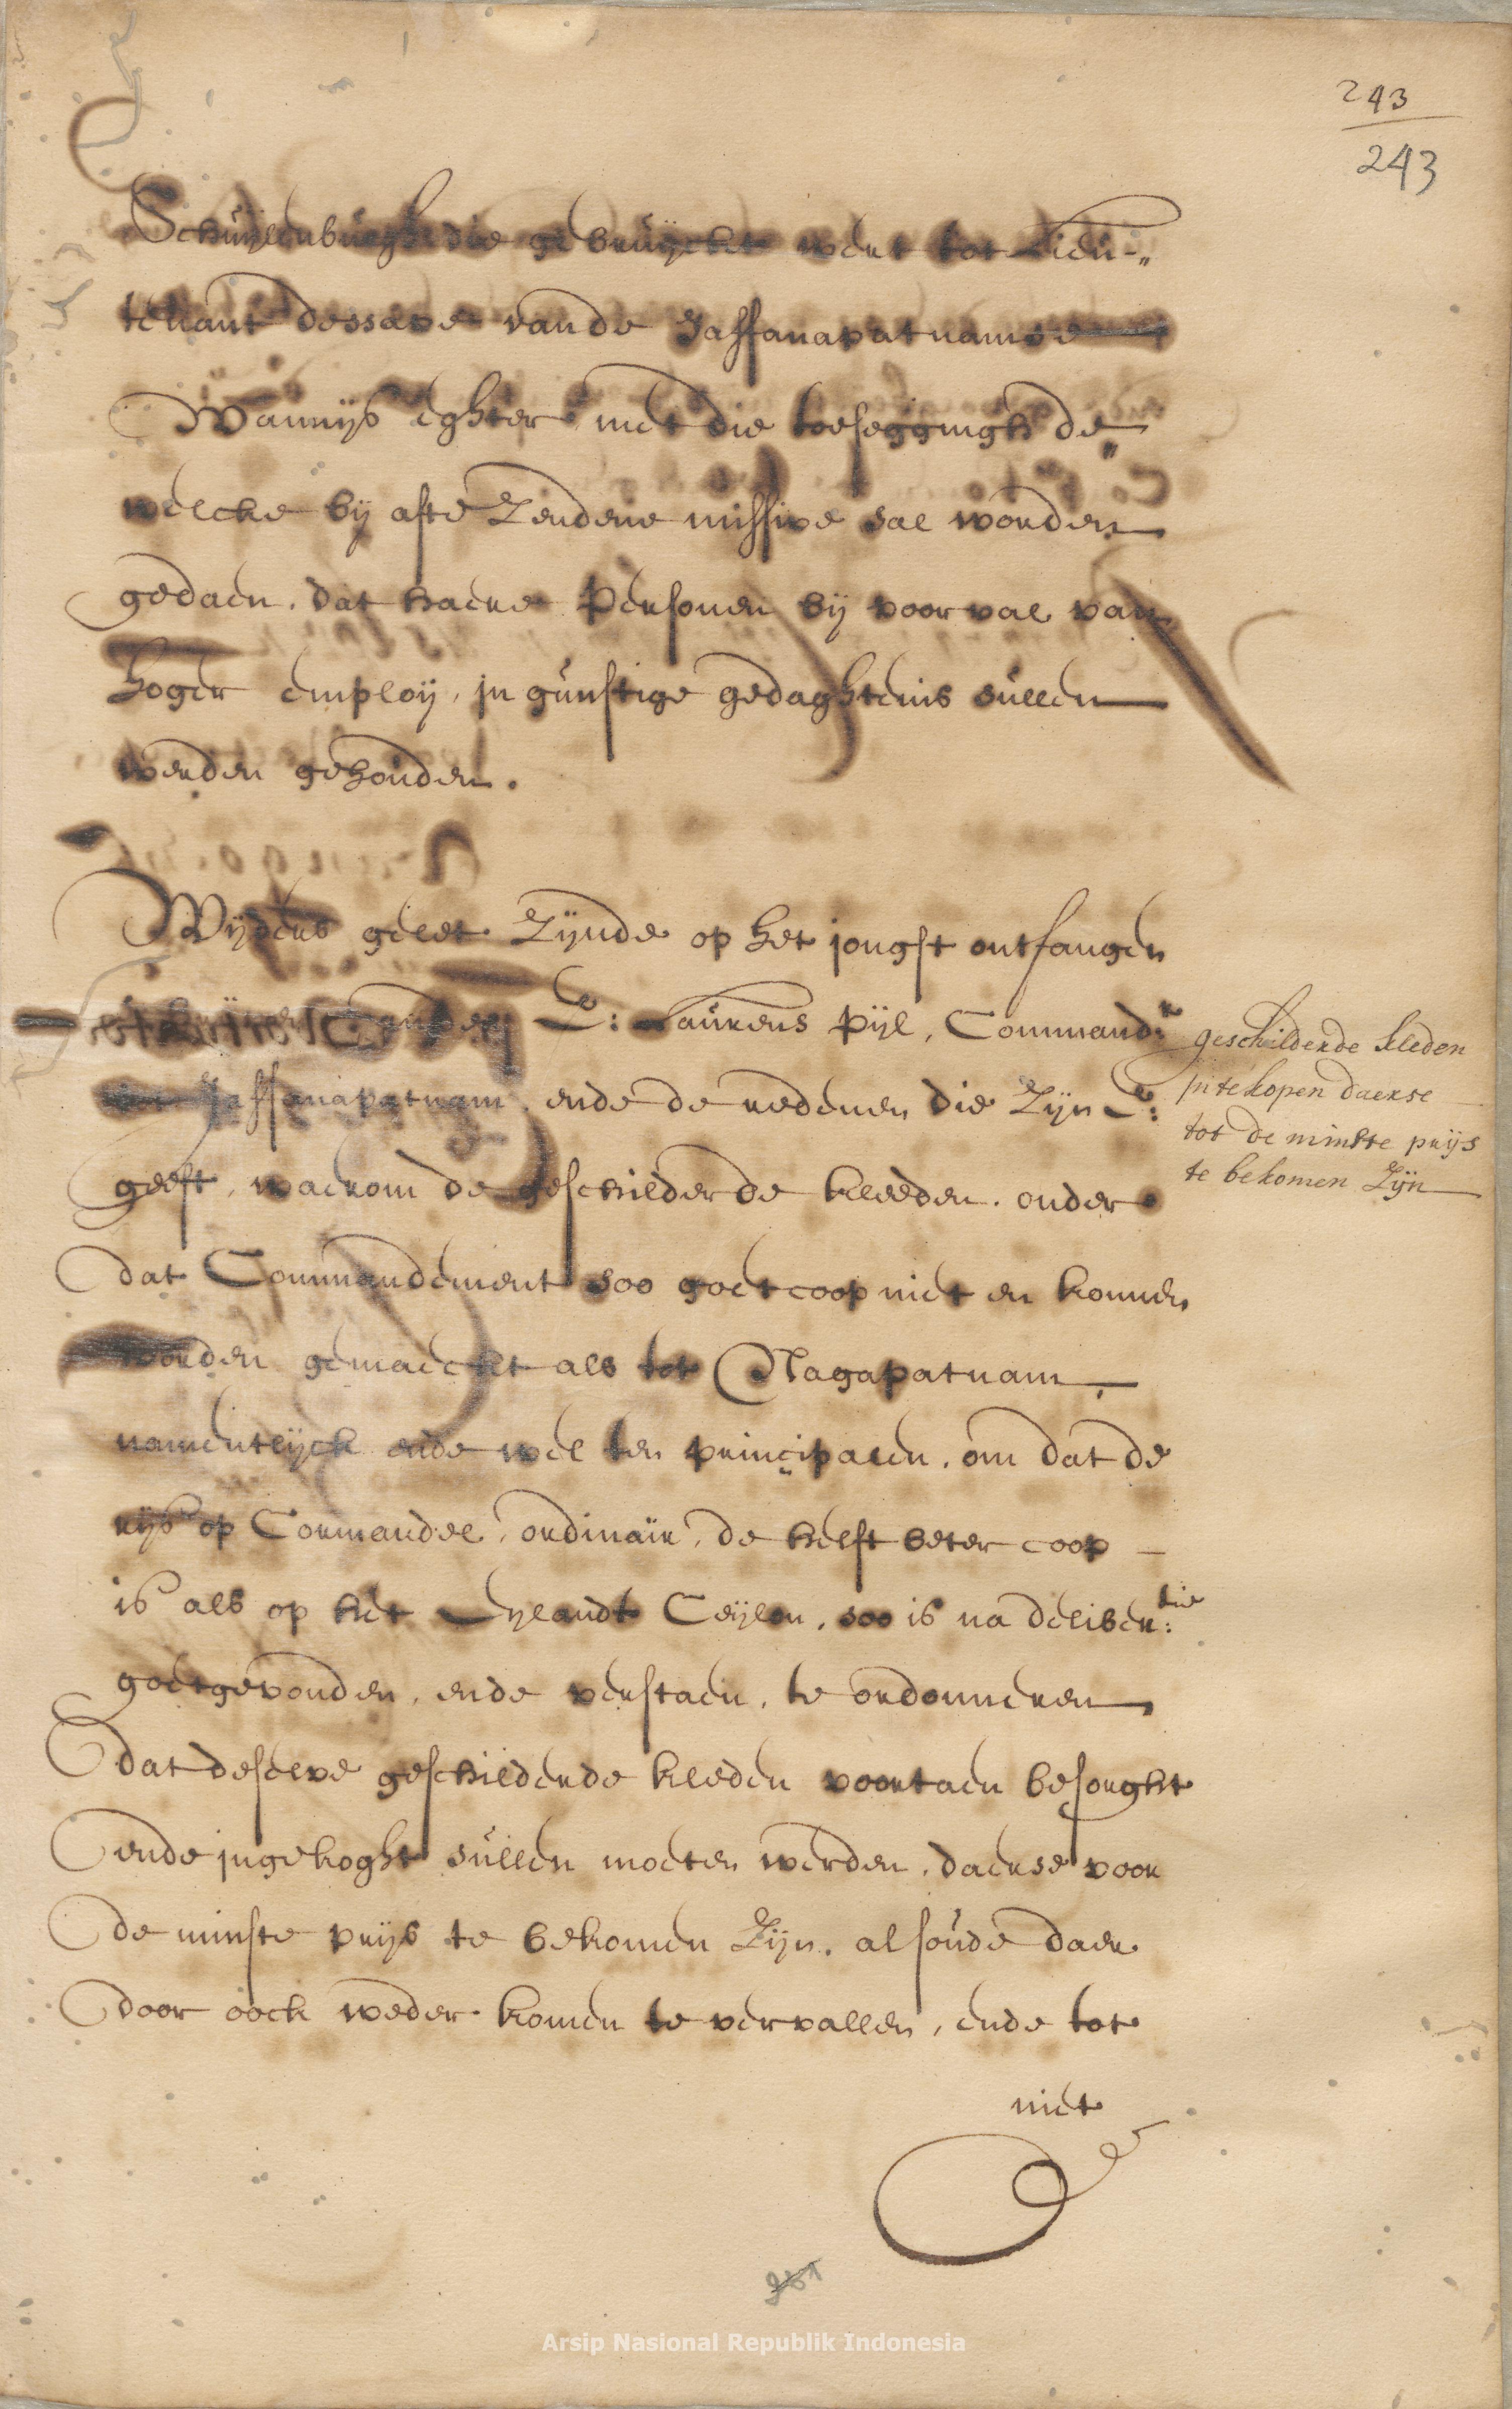 243
243
Schuijlenburgh die gebruijckt wert tot Lieu-„
tenant dessave vande Jaffanapatnamse
Wannijs eghter met die toeseggingh de„
welcke bij afte Zendene missive sal worden
gedaen, dat haere persoonen bij voorval van
hoger employ, in gunstige gedaghtenis sullen
werden gehouden.
Wijders gelet Zijnde op het jongst ontfangen
E: Laurens Pijl, Command:r
Jaffanapatnam, ende de redenen die Zijn E:
geeft, waerom de geschilderde kleeden, onder
dat Commandement soo goetcoop niet en konnen
worden gemaeckt als tot Nagapatnam
namentlijck ende wel ten principalen, om dat de
rijs op Cormandel, ordinair, de helft beter coop
is als op het Eylandt Ceijlon, soo is na deliber:tie
goetgevonden, ende verstaen, te ordonneren
dat deselve geschilderde kleden voortaen besorght
ende ingekoght sullen moeten werden, daerse voor
de minste prijs te bekomen Zijn, alsoude daer
door oock weder komen te vervallen, ende tot
niet
geschilderde kleden
in te kopen daerse
tot de minste prijs
te bekomen Zijn
Arsip Nasional Republik Indonesia